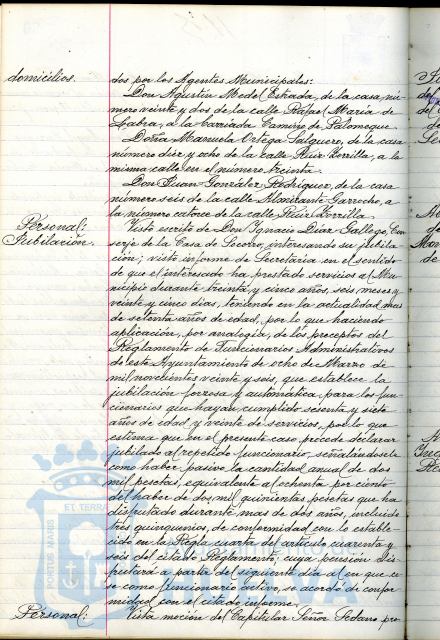 domicilios.
dos por los Agentes Municipales:
Don Agustín Medel Estrada, de la casa nú-
mero veinte y dos de la calle Rafael María de
Labra, a la barriada Camino de Palomeque.
Doña Manuela Ortega Salguero, de la casa
número diez y ocho de la calle Ruiz Zorrilla, a la
misma calle en el número treinta.
Don Juan González Rodríguez, de la casa
número seis de la calle Almirante Garrocho, a
la número catorce de la calle Ruiz Zorrilla.
Personal:
Jubilación.
Visto escrito de Don Ignacio Díaz Gallego, Con-
serje de la Casa de Socorro, interesando su jubila-
ción; visto informe de Secretaría en el sentido
de que el interesado ha prestado servicios al Mu-
nicipio durante treinta y cinco años, seis meses y
veinte y cinco días, teniendo en la actualidad mas
de setenta años de edad, por lo que haciendo
aplicación, por analogía, de los preceptos del
Reglamento de Funcionarios Administrativos
de este Ayuntamiento de ocho de Marzo de
mil novecientos veinte y seis, que establece la
jubilación forzosa y automática, para los fun-
cionarios que hayan cumplido sesenta y siete
años de edad y veinte de servicios, por lo que
estima que en el presente caso procede declarar
jubilado al repetido funcionario, señalándosele
como haber pasivo la cantidad anual de dos
mil pesetas, equivalente al ochenta por ciento
del haber de dos mil quinientas pesetas que ha
disfrutado durante mas de dos años, incluido
tres quinquenios, de conformidad con lo estable-
cido en la Regla cuarta del artículo cuarenta y
seis del citado Reglamento; cuya pensión dis-
frutará a partir del siguiente día al en que ce-
se como funcionario activo, se acordó de confor-
midad con el citado informe.
Personal:
Vista moción del Capitular Señor Pedano pro-
PORTUS MARIS
ET TERRA